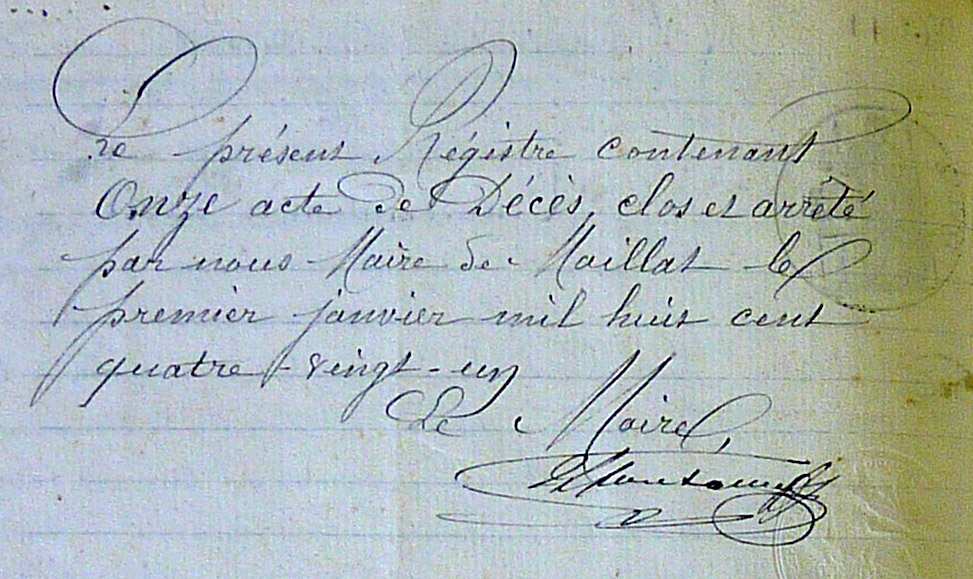 Le présent Régistre contenant
Onze acte de Décès, clos et arrêté
par nous Maire de Maillat le
premier janvier mil huit cent
quatre-vingt-un
Le Maire,